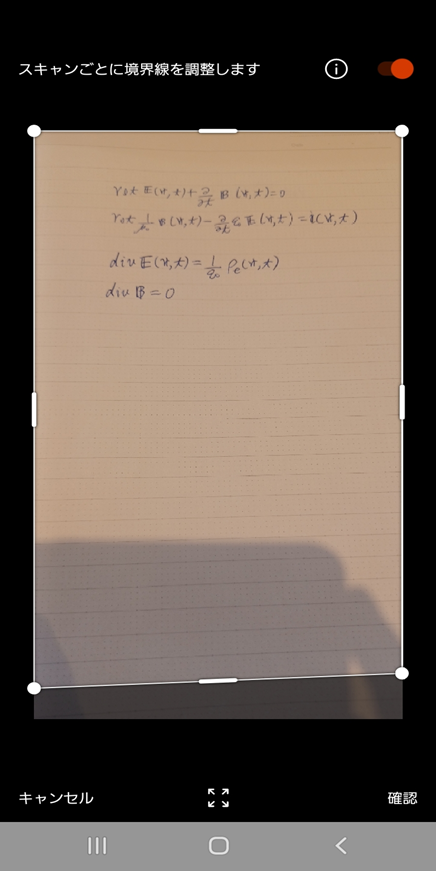 スキャンごとに境界線を調整します
rot E(r,t)+∂/∂t B(r,t)=0
rot 1/μ₀ B(r,t)−∂/∂t ε₀ E(r,t)=i(r,t)
div E(r,t)=1/ε₀ ρe(r,t)
div B=0
キャンセル
確認